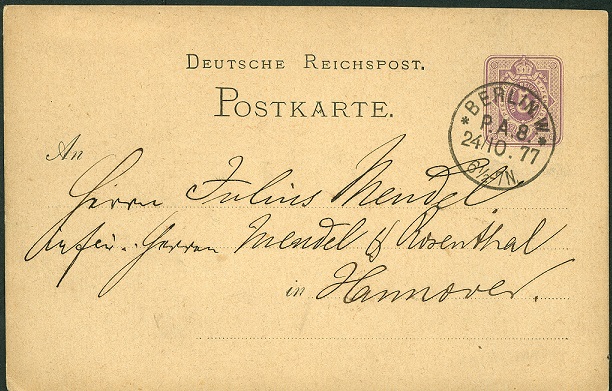 DEUTSCHE REICHSPOST.
POSTKARTE.
* BERLIN W. *
P.A.8.
24/10.77
6½-7N.
An
Herrn Julius Mendel,
Herren Mendel & Rosenthal
in Hannover.